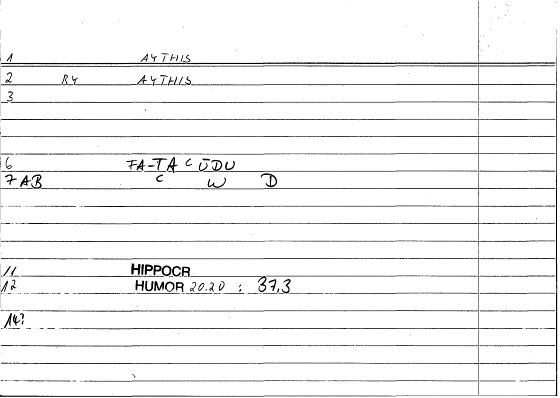 1 AYTHIS
2 RY AYTHIS
3
6 FA-TA C ŪDU
7 AB C W D
11 HIPPOCR
12 HUMOR 20.20 : 37,3
14?